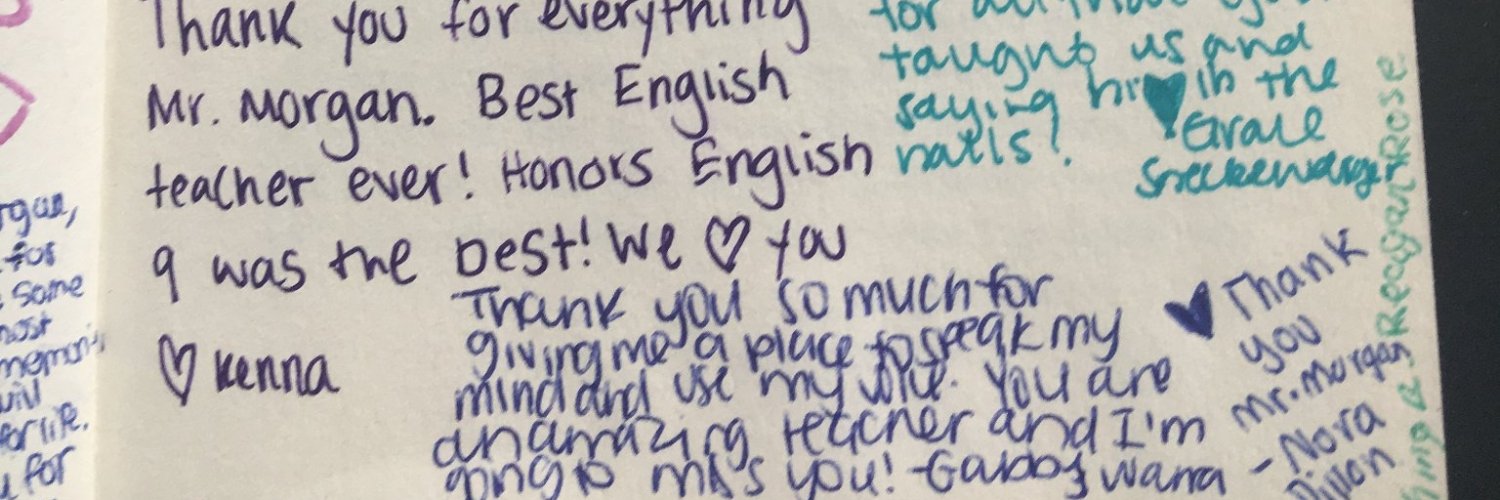 Thank you for everything
Mr. Morgan. Best English
teacher ever! Honors English
9 was the best! We ♡ you
♡ Kenna
for all that you
taught us and
saying hi in the
halls!
♥ Grace
Thank you so much for
giving me a place to speak my
mind and use my voice. You are
an amazing teacher and I'm
going to miss you! -Gabby
♥ Thank
you
Mr. Morgan
- Nora
Dillon
Reagan Rose
for
some
most
will
for life.
for